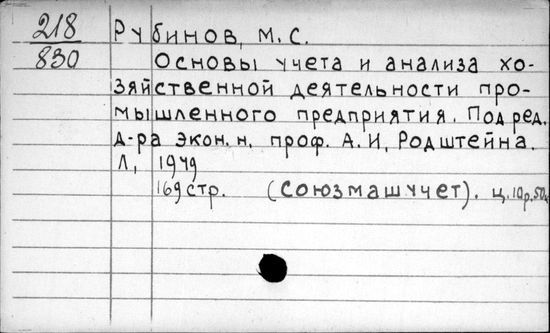 218 Рубинов, М.С.
830 Основы учета и анализа хо-
зяйственной деятельности про-
мышленного предприятия. Под ред.
д-ра экон. н. проф. А.И. Родштейна.
Л, 1949
169 стр. (Союзмашучет). ц. 10р.50к